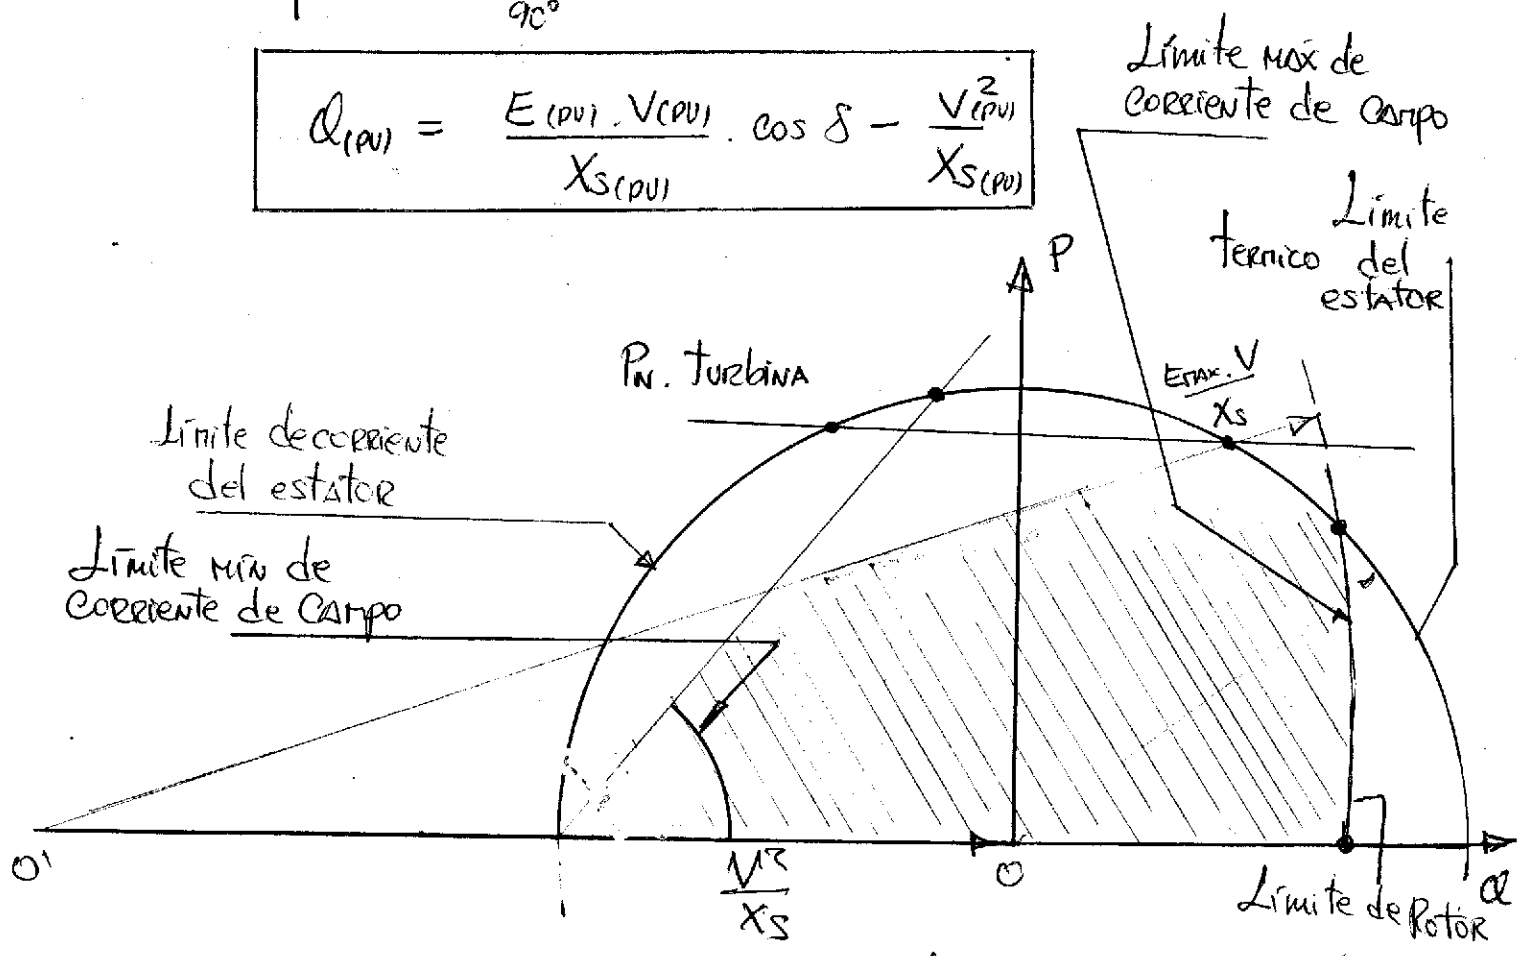 90°
Q(PU) = E(PU) . V(PU) / XS(PU) . cos δ - V²(PU) / XS(PU)
Límite máx de
corriente de campo
Límite
termico del
estator
P
PN. turbina
Emax. V / XS
Límite de corriente
del estator
Límite mín de
corriente de campo
O'
V² / XS
O
Límite de Rotor
Q